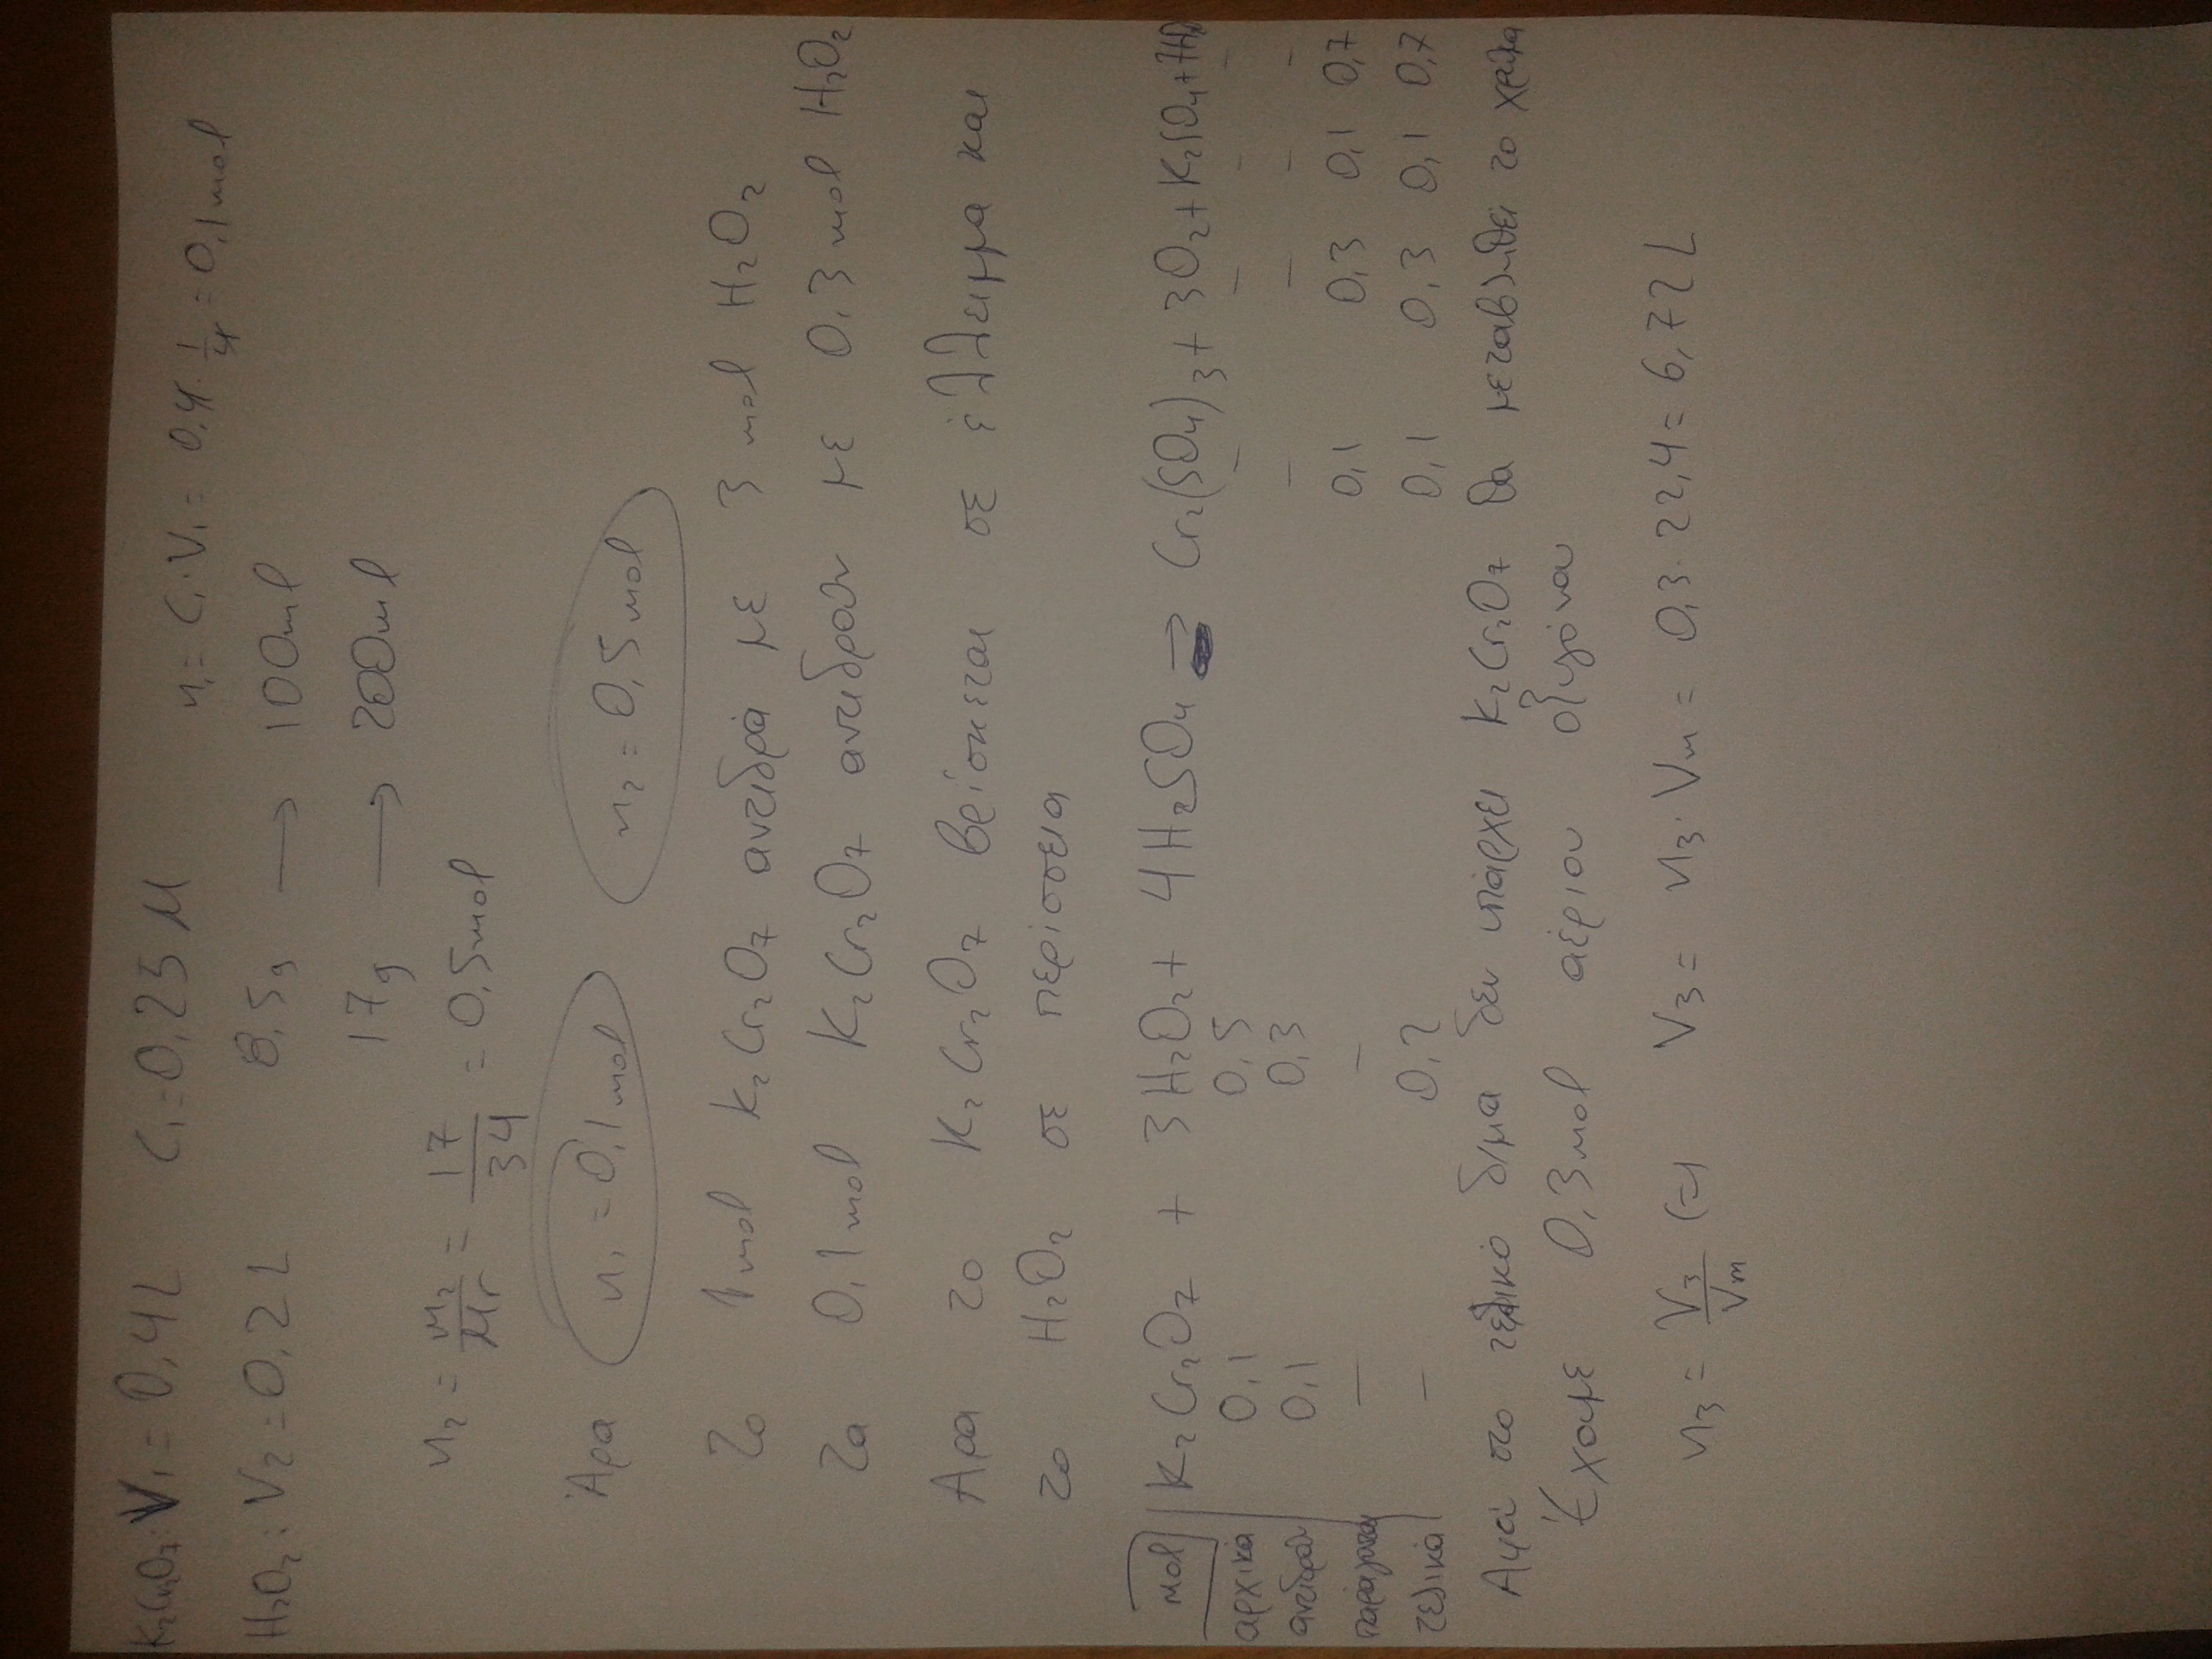 K₂Cr₂O₇: V₁ = 0,4 L C₁ = 0,25 M n₁ = C₁·V₁ = 0,4 · 1/4 = 0,1 mol
H₂O₂: V₂ = 0,2 L 8,5g → 100ml
17g → 200ml
n₂ = m₂/Mr = 17/34 = 0,5 mol
Άρα n₁ = 0,1 mol n₂ = 0,5 mol
Το 1 mol K₂Cr₂O₇ αντιδρά με 3 mol H₂O₂
Τα 0,1 mol K₂Cr₂O₇ αντιδρούν με 0,3 mol H₂O₂
Άρα το K₂Cr₂O₇ βρίσκεται σε έλλειμμα και
το H₂O₂ σε περίσσεια
mol K₂Cr₂O₇ + 3H₂O₂ + 4H₂SO₄ → Cr₂(SO₄)₃ + 3O₂ + K₂SO₄ + 7H₂O
αρχικά 0,1 0,5 - - - -
αντιδρούν 0,1 0,3 - - - -
παράγονται - - 0,1 0,3 0,1 0,7
τελικά - 0,2 0,1 0,3 0,1 0,7
Αφού στο τελικό δ/μα δεν υπάρχει K₂Cr₂O₇ θα μεταβληθεί το χρώμα
Έχουμε 0,3 mol αέριου οξυγόνου
n₃ = V₃/Vm (=) V₃ = n₃ · Vm = 0,3 · 22,4 = 6,72 L